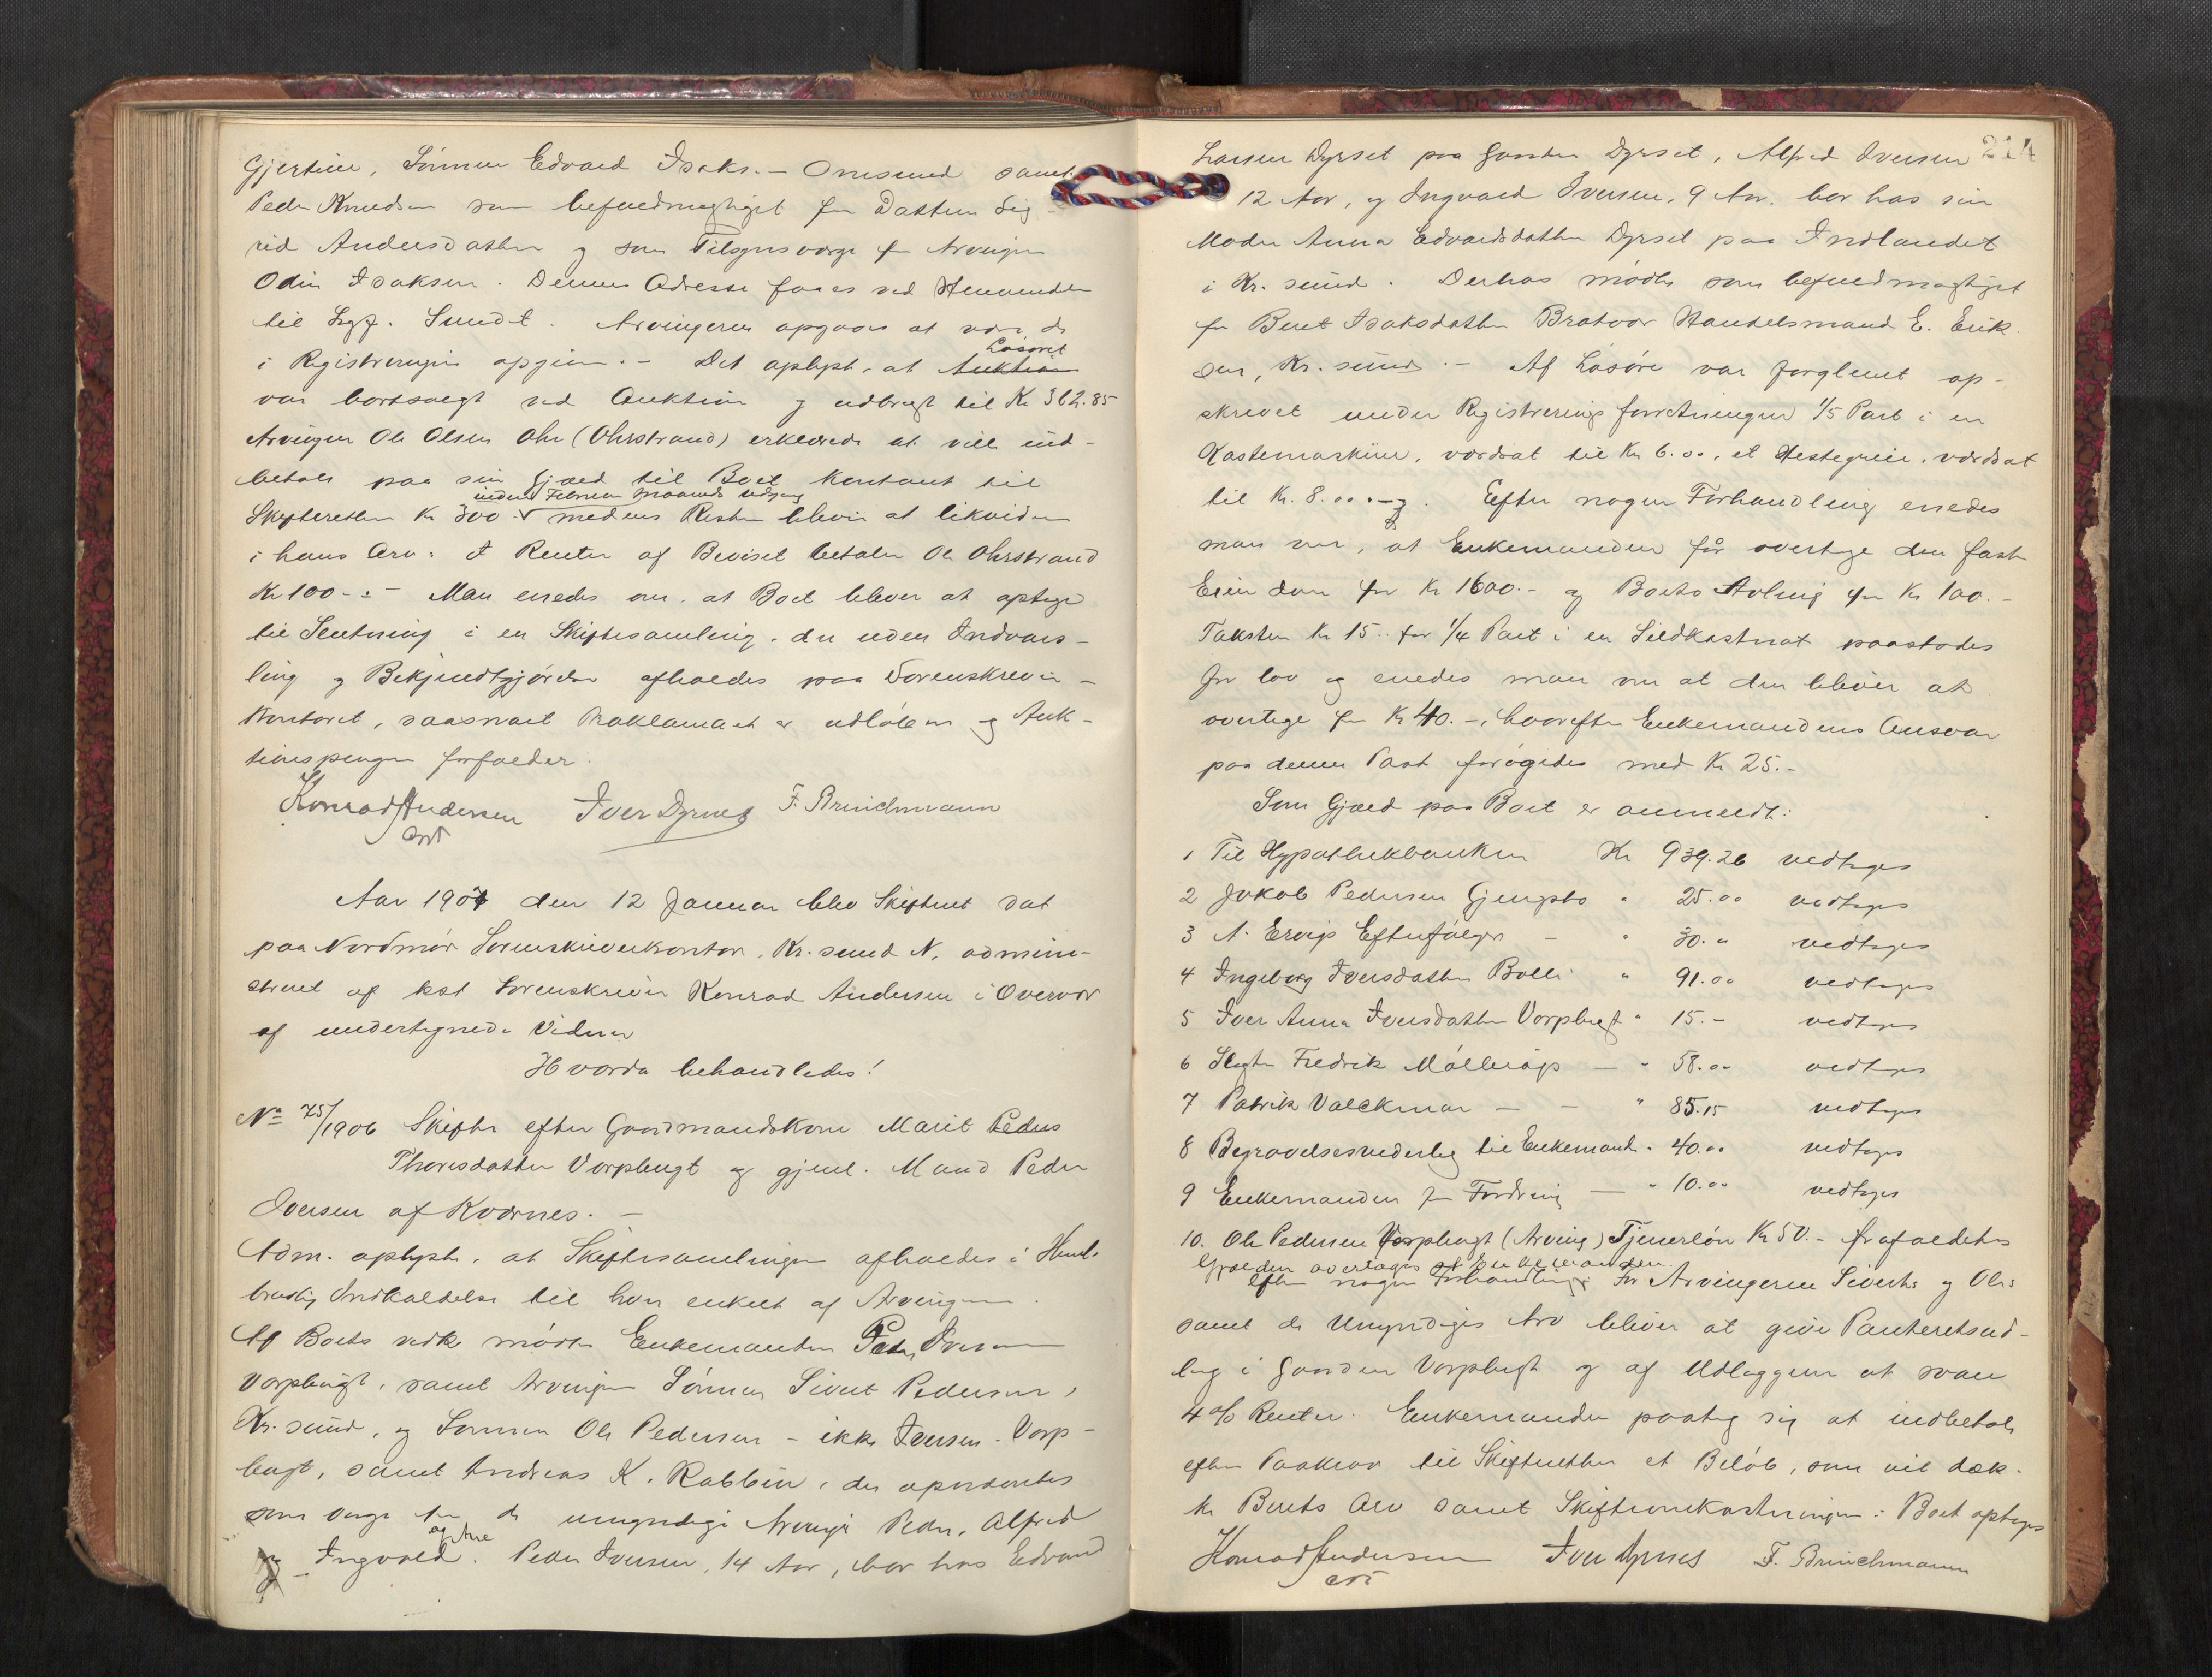 Gjertine, Sønnen Edvard Isaks. - Onesund samt
Peder Knudsen som befuldmægtiget for Datteren Sig-
rid Andersdatter og som Tilsynsværge for Arvingen
Odin Isaksen. Dennes Adresse faaes ved Henvendn
til Sagf. Sundt. Arvingerne opgaves at være de
i Registreringen opgivne. - Det oplyst, at Auktion Løsøret
var bortsolgt ved Auktion og udbragt til Kr 362.85
Arvingen Ole Olsen Ohr (Ohrstrand) erklærede at ville ind-
betale paa sin Gjæld til Boet kontant til
inden Februar Maaneds Udgang
Skifteretten Kr 300 - medens Resten bliver at likvidere
i hans Arv: I Renter af Beviset betaler Ole Ohrstrand
Kr 100 - : - Man enedes om, at Boet bliver at optage
til Slutning i en Skiftesamling, der uden Indvars-
ling og Bekjendtgjørelse afholdes paa Sorenskriver-
kontoret, saasnart Proklamaet er udløben og Auk-
tionspengene forfalder.
Konrad Andersen Iver Dyrnes F. Brinchmann
cst
Aar 1907 den 12 Januar blev Skifteret sat
paa Nordmør Sorenskriverkontor, Kr. sund N, admini-
streret af kst Sorenskriver Konrad Andersen i Overvær
af undertegnede Vidner
Hvorda behandledes!
No 75/1906 Skifte efter Gaardmandskone Marit Peders
Thoresdatter Vorpbugt og gjenl. Mand Peder
Iversen af Kvernes. -
Adm. oplyste, at Skiftesamlingen afholdes i Henh.
til Indkaldelse til hver enkelt af Arvingerne.
Af Boets vedk mødte Enkemanden Peder Iversen
Vorpbugt, samt Arvingen Sønnen Sivert Pedersen,
Kr. sund, og Sønnen Ole Pedersen - ikke Iversen - Vorp-
bugt, samt Andreas K. Rabben, der opnævntes
som Verge for de umyndige Arvinger Peder, Alfred
og Ingvald og Ane. Peder Iversen, 14 Aar, bor hos Edvard
214
Larsen Dyrset paa Gaarden Dyrset, Alfred Iversen
12 Aar, og Ingvald Iversen, 9 Aar, bor hos sin
Moder Anna Edvardsdatter Dyrset paa Indlandet
i Kr. sund. Derhos mødte som befuldmægtiget
for Beret Isaksdatter Bratvær Handelsmand E. Erik
sen, Kr. sund. - Af Løsøre var forglemt op-
skrevet under Registreringsforretningen 1/5 Part i en
Kastemaskine, værdsat til Kr 6.00, et Hestegreie, værdsat
til Kr. 8.00. Efter nogen Forhandling enedes
man om, at Enkemanden får overtage den faste
Eiendom for Kr 1600.- og Boets Avling for Kr 100.-
Taksten Kr 15.- for 1/4 Part i en Sildkastnot paastodes
for lav og enedes man om at den bliver at
overtage for Kr 40.-, hvorefter Enkemandens Ansvar
paa denne Post forøgedes med Kr 25.-
Som Gjæld paa Boet er anmeldt:
1 Til Hypothekbanken Kr 939.26 vedtages
2 Jakob Pedersen Gjengstø " 25.00 vedtages
3 A. Ervigs Efterfølger - " 30.00 vedtages
4 Ingeborg Iversdatter Bolli " 91.00 vedtages
5 Iver Anna Iversdatter Vorpbugt " 15.- vedtages
6 Slagter Fredrik Møllerop - " 58.00 vedtages
7 Patrik Volckmar - - " 85.15 vedtages
8 Begravelsesvederlag til Enkemand " 40.00 vedtages
9 Enkemanden for Fordring - " 10.00 vedtages
10. Ole Pedersen Vorpbugt (Arving) Tjenerløn Kr 50.- frafaldetes
Gjælden overtages af Enkemanden
efter nogen Forhandling. For Arvingerne Siverts og Oles
samt de Umyndiges Arv bliver at give Panteretsud-
læg i Gaarden Vorpbugt og af Udlæggene at svare
4 % Renter. Enkemanden paatog sig at indbetale
efter Paakrav til Skifteretten et Beløb, som vil dæk-
ke Berets Arv samt Skifteomkostningerne: Boet optages
Konrad Andersen Iver Dyrnes F. Brinchmann
cst